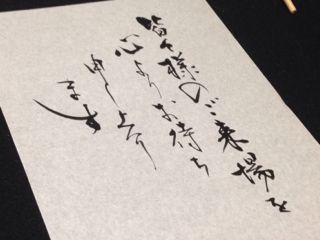 皆々様のご来場を
心よりお待ち
申し上げ
ます